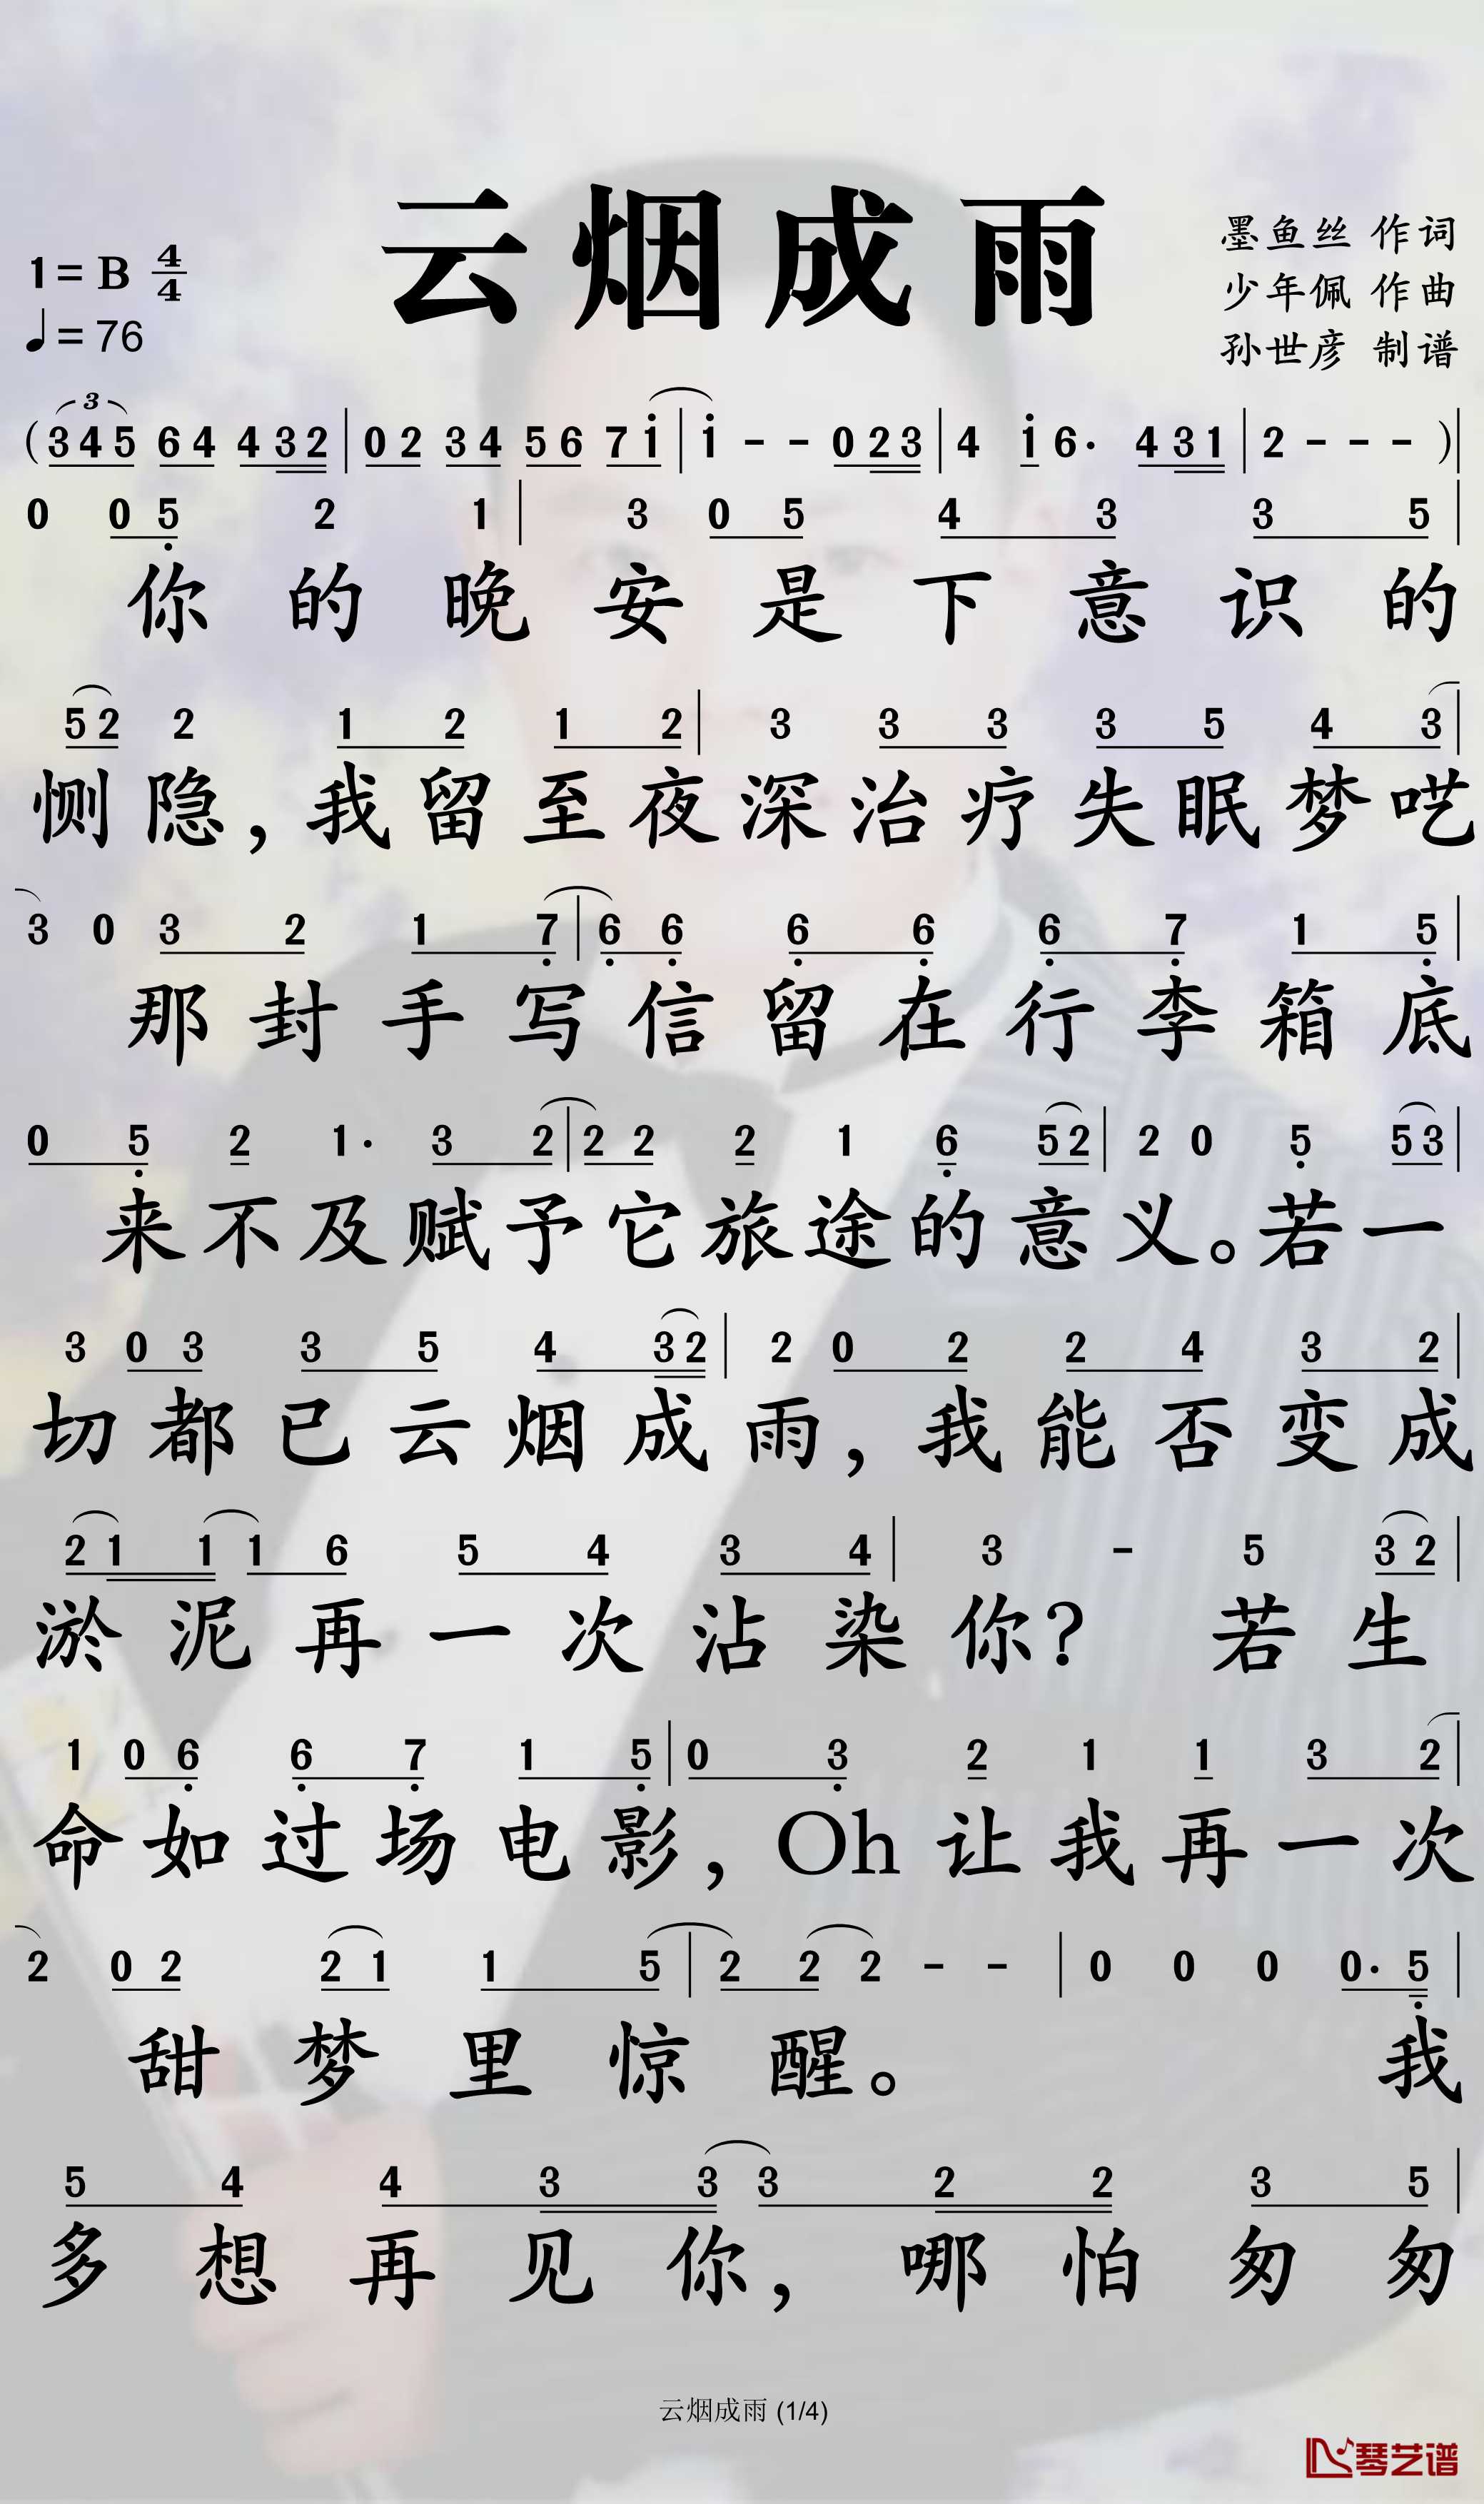 云烟成雨
1=B 4/4
♩=76
墨鱼丝 作词
少年佩 作曲
孙世彦 制谱
( 3 4 5 6 4 4 3 2 | 0 2 3 4 5 6 7 1 | 1 - - 0 2 3 | 4 1 6· 4 3 1 | 2 - - - ) |
0 0 5 2 1 | 3 0 5 4 3 3 5 |
你的晚安是下意识的
5 2 2 1 2 1 2 | 3 3 3 3 5 4 3 |
恻隐，我留至夜深治疗失眠梦呓
3 0 3 2 1 7 | 6 6 6 6 6 7 1 5 |
那封手写信留在行李箱底
0 5 2 1· 3 2 | 2 2 2 1 6 5 2 | 2 0 5 5 3 |
来不及赋予它旅途的意义。若一
3 0 3 3 5 4 3 2 | 2 0 2 2 4 3 2 |
切都已云烟成雨，我能否变成
2 1 1 1 6 5 4 3 4 | 3 - 5 3 2 |
淤泥再一次沾染你？ 若生
1 0 6 6 7 1 5 | 0 3 2 1 1 3 2 |
命如过场电影，Oh让我再一次
2 0 2 2 1 1 5 | 2 2 2 - - | 0 0 0 0· 5 |
甜梦里惊醒。 我
5 4 4 3 3 3 2 2 3 5 |
多想再见你，哪怕匆匆
云烟成雨 (1/4)
琴艺谱